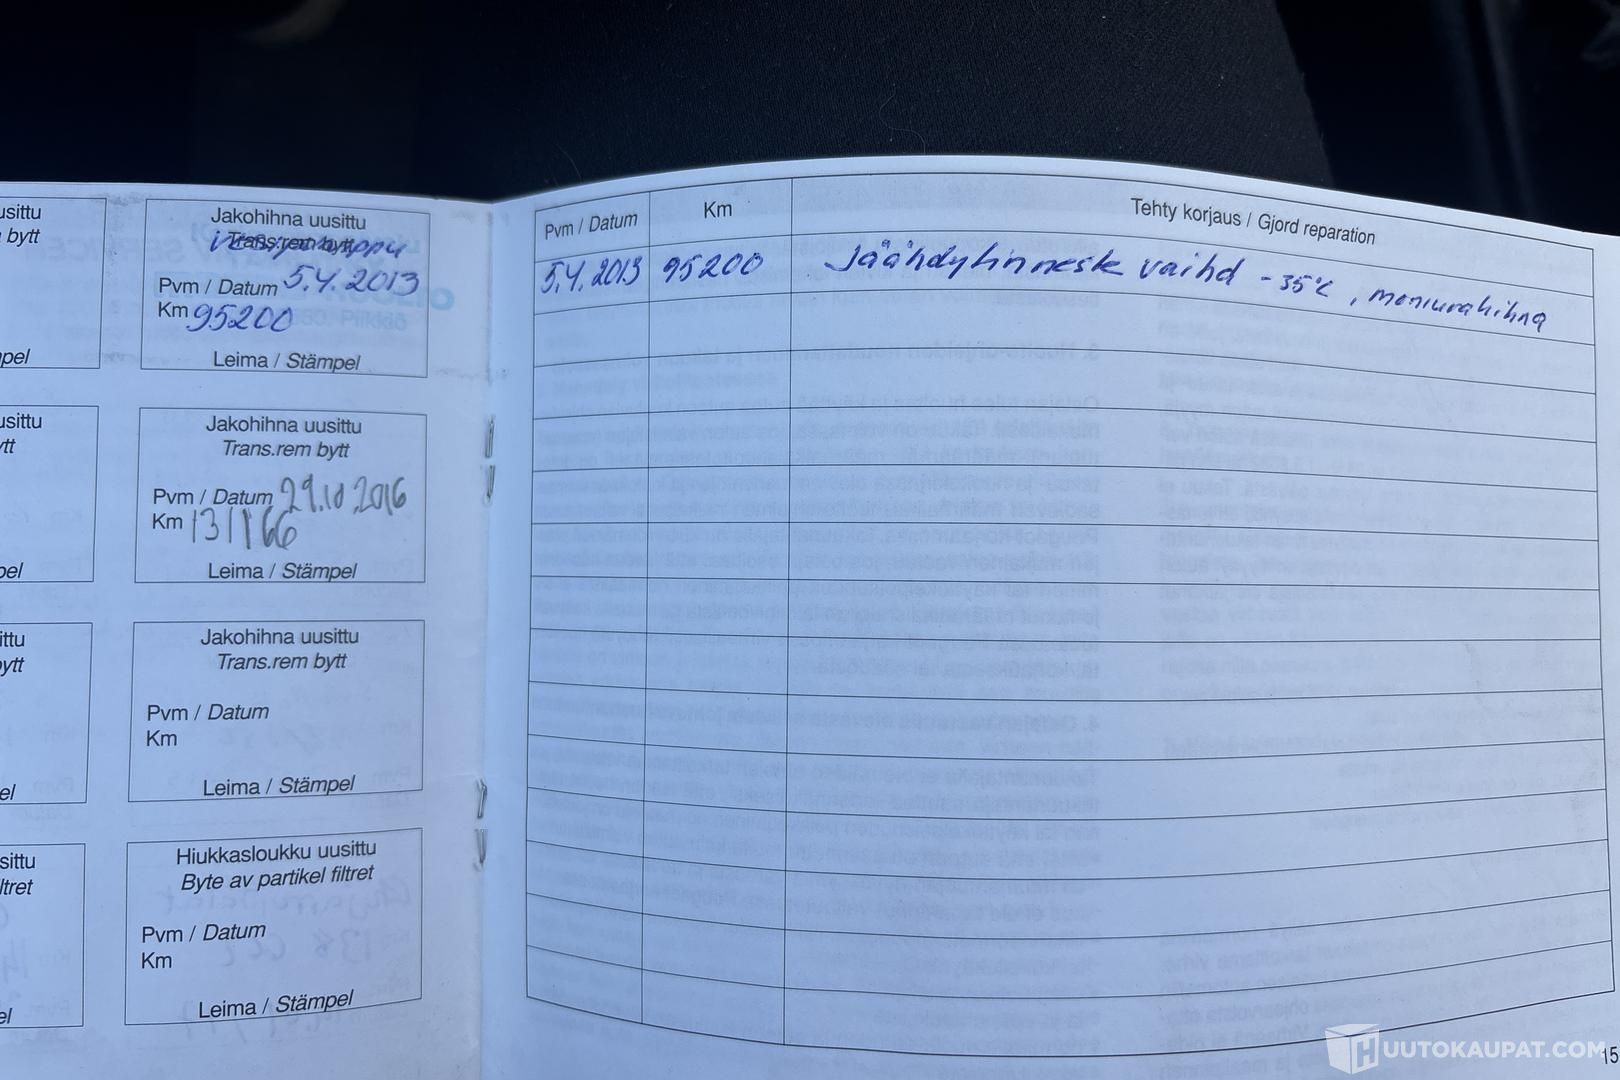 usitu
bytt
pel
usittu
tt
pel
ittu
ytt
el
sittu
ltret
el
Jakohihna uusittu
Trans.rem bytt
vesipumppu
Pvm / Datum 5.4.2013
Km 95200
Leima / Stämpel
Jakohihna uusittu
Trans.rem bytt
Pvm / Datum 29.10.2016
Km 131166
Leima / Stämpel
Jakohihna uusittu
Trans.rem bytt
Pvm / Datum
Km
Leima / Stämpel
Hiukkasloukku uusittu
Byte av partikel filtret
Pvm / Datum
Km
Leima / Stämpel
Pvm / Datum Km Tehty korjaus / Gjord reparation
5.4.2013 95200 Jäähdytinneste vaihd -35°c, moniurahihna
15
HUUTOKAUPAT.COM